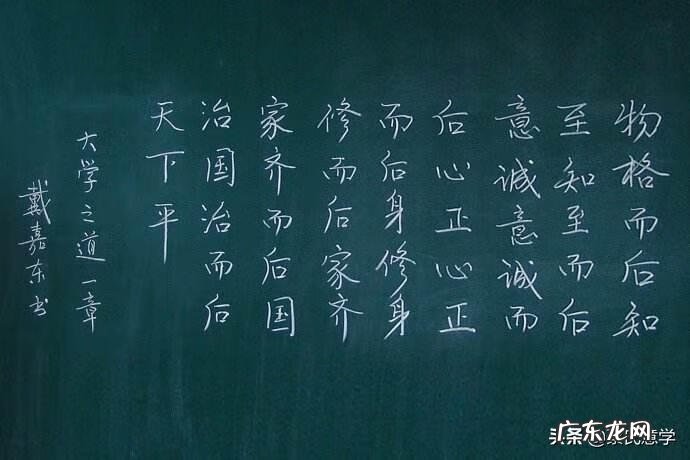 物格而后知
至知至而后
意诚意诚而
后心正心正
而后身修身
修而后家齐
家齐而后国
治国治而后
天下平
大学之道一章
戴嘉东书
广东龙网
头条